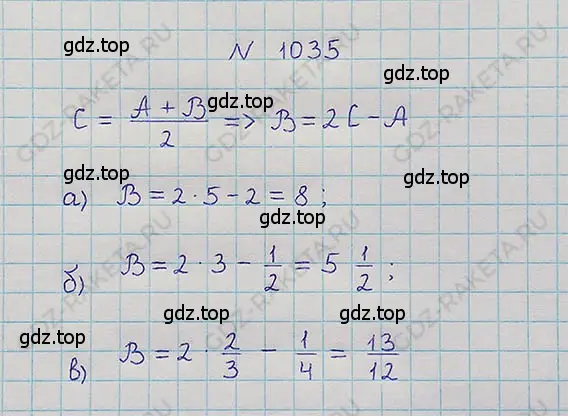 gdz.top
N 1035
gdz.top gdz.top
C = (A + B)/2 => B = 2C - A
а) B = 2 · 5 - 2 = 8 ;
gdz.top gdz.top
б) B = 2 · 3 - 1/2 = 5 1/2 ;
gdz.top gdz.top
gdz.top
в) B = 2 · 2/3 - 1/4 = 13/12
gdz.top gdz.top
GDZ-RAKETA.RU